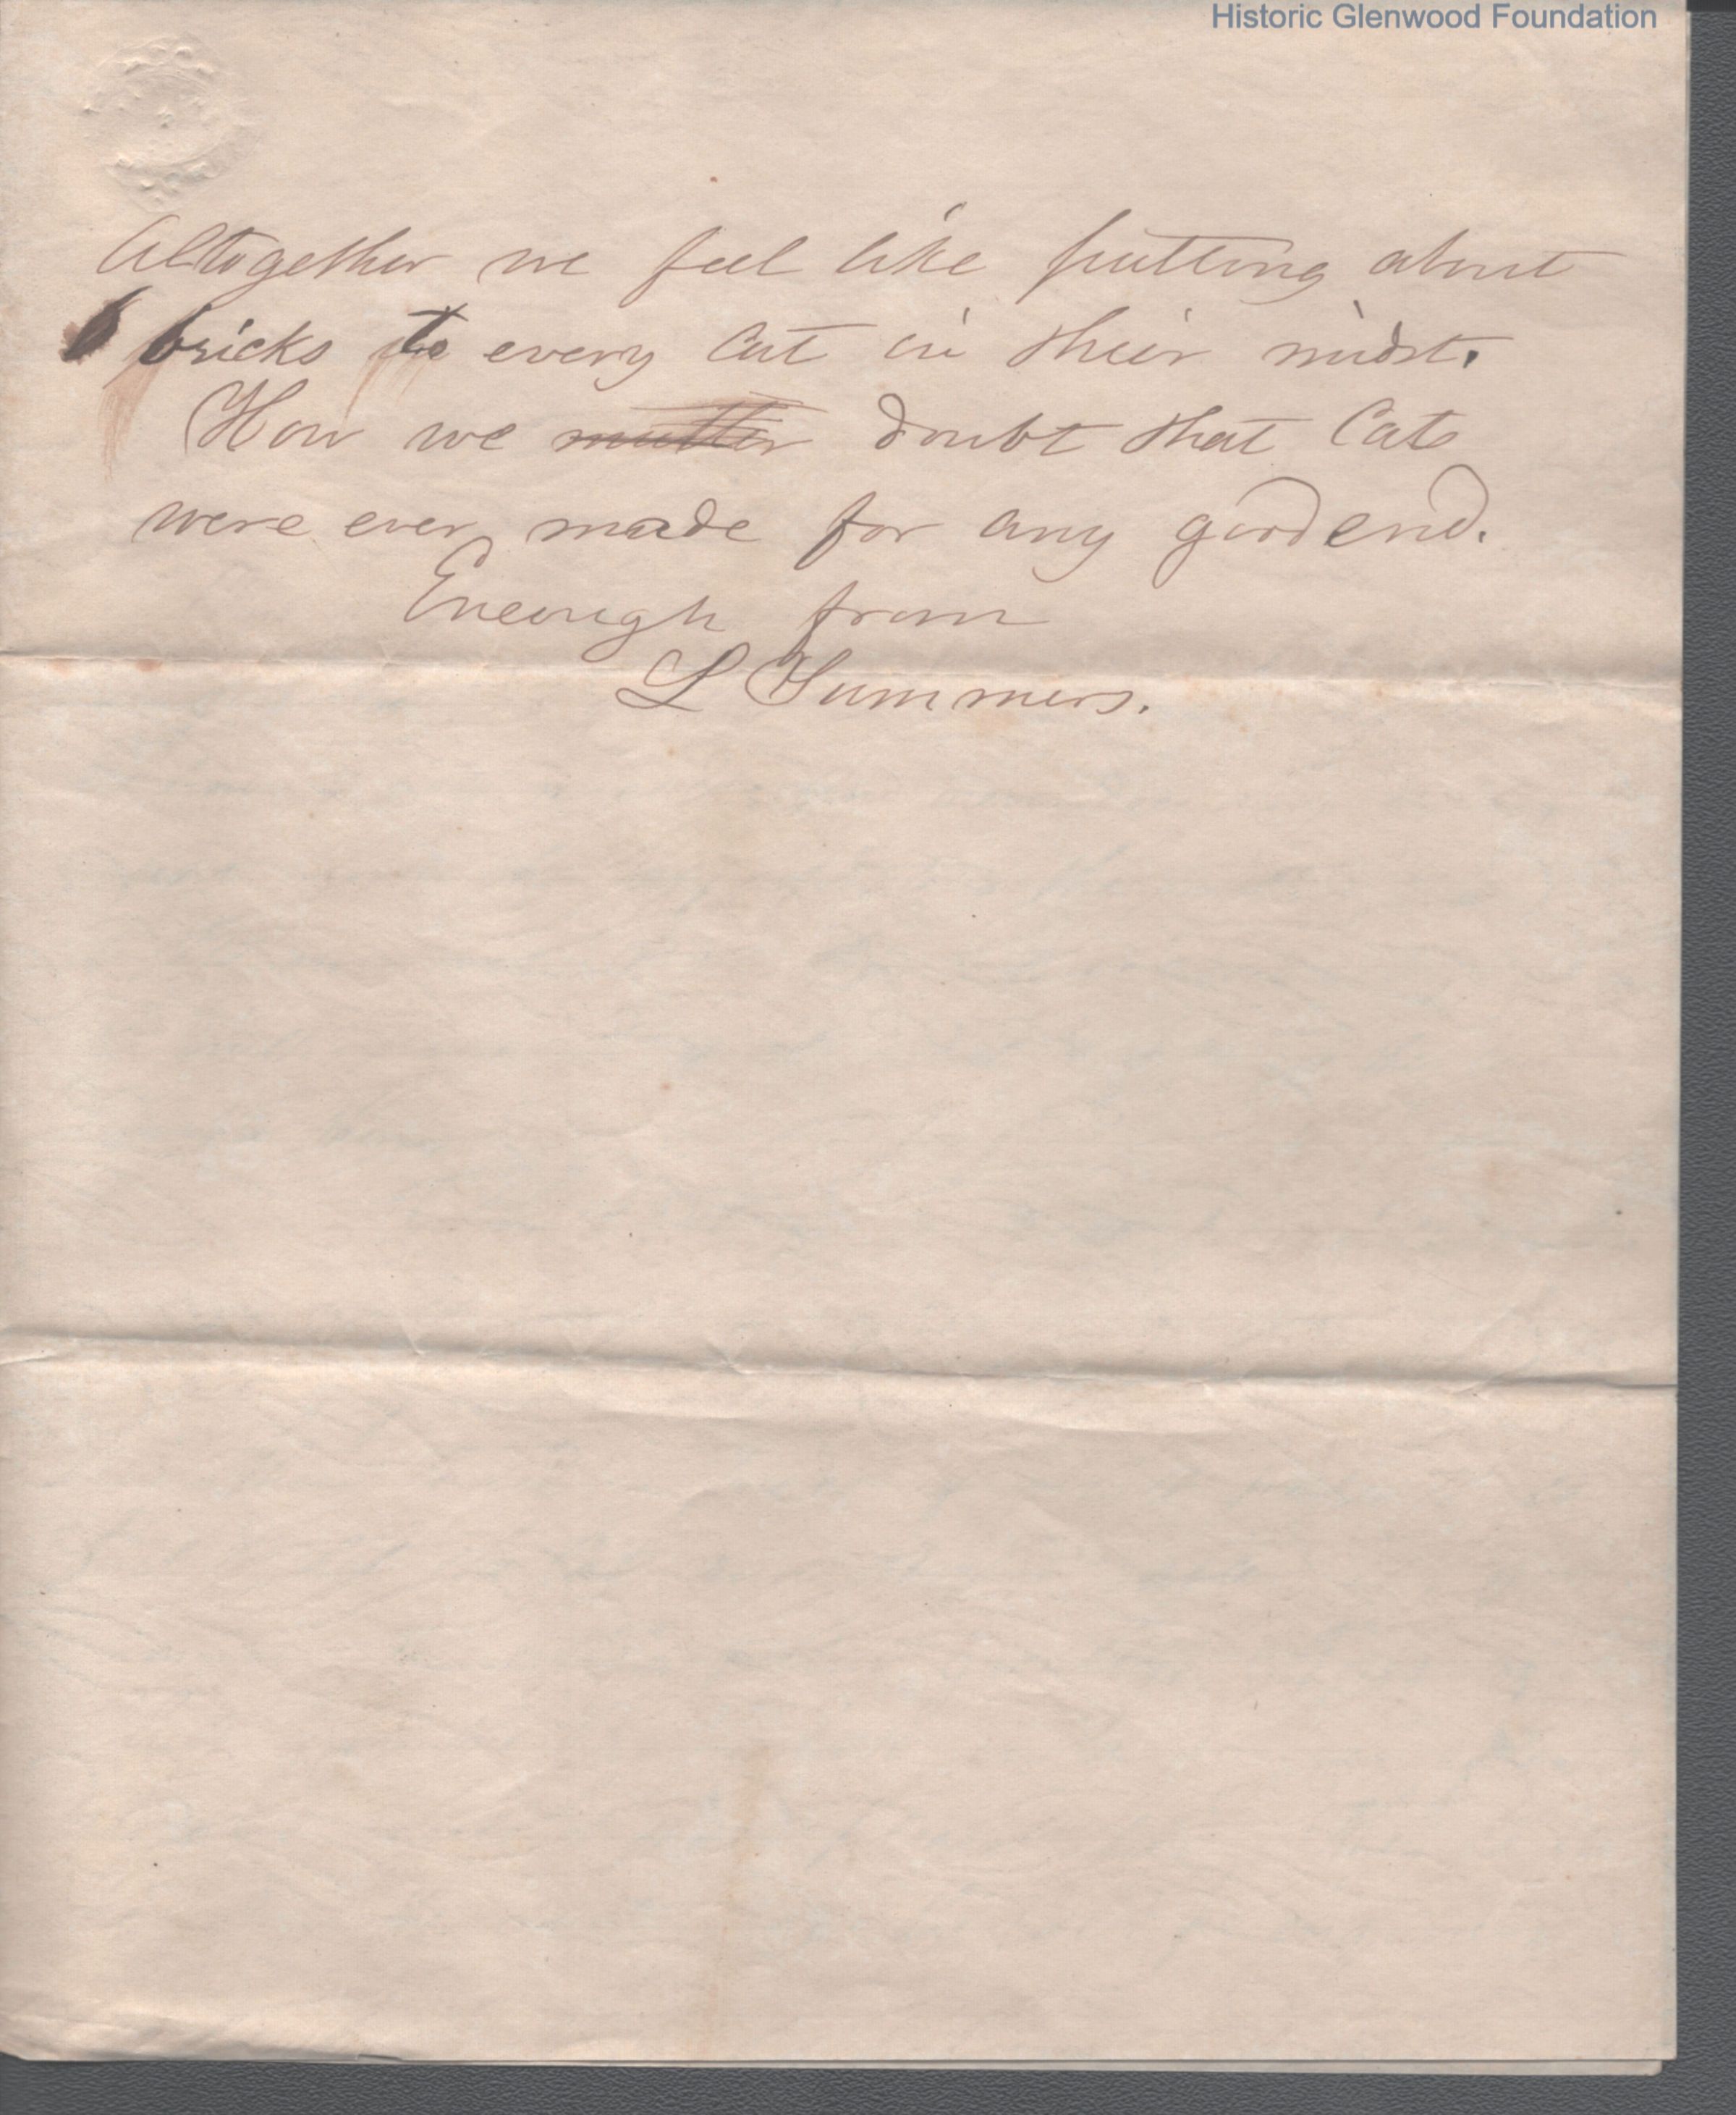 Historic Glenwood Foundation
Altogether we feel like putting about
6 bricks to every Cat in their midst.
How we mutter doubt that Cats
were ever made for any good end.
Eneough from
L Summers.